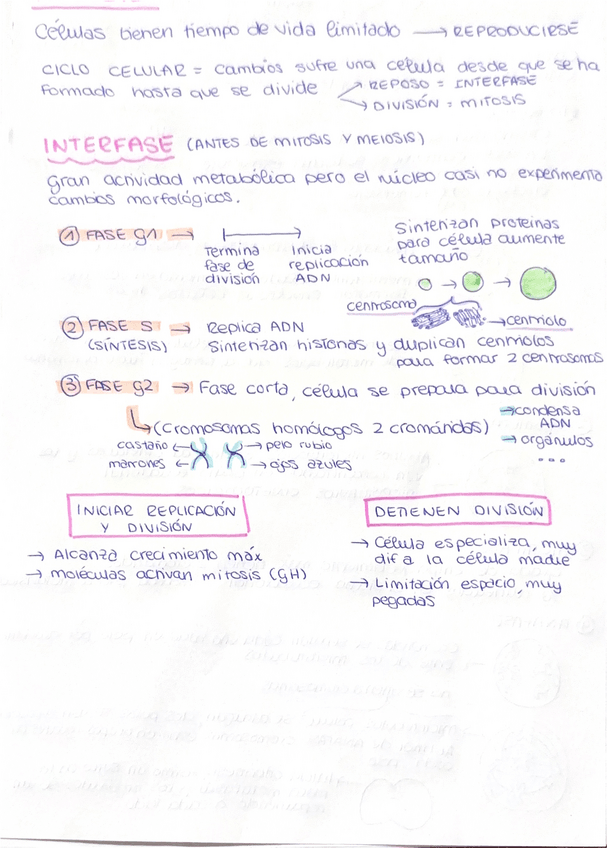 Células tienen tiempo de vida limitado → REPRODUCIRSE
CICLO CELULAR = cambios sufre una célula desde que se ha
formado hasta que se divide → REPOSO = INTERFASE
→ DIVISIÓN = MITOSIS
INTERFASE (ANTES DE MITOSIS Y MEIOSIS)
Gran actividad metabólica pero el núcleo casi no experimenta
cambios morfológicos.
① FASE G1 →
Termina
fase de
división
Inicia
replicación
ADN
Sintetizan proteínas
para célula aumente
tamaño
centrosoma
→ centriolo
② FASE S → Replica ADN
(SÍNTESIS) Sintetizan histonas y duplican centriolos
para formar 2 centrosomas
③ FASE G2 → Fase corta, célula se prepara para división
→ condensa
ADN
→ orgánulos
...
(cromosomas homólogos 2 cromátidas)
castaño ← → pelo rubio
marrones ← → ojos azules
INICIAR REPLICACIÓN
Y DIVISIÓN
→ Alcanza crecimiento máx
→ moléculas activan mitosis (GH)
DETIENEN DIVISIÓN
→ Célula especializa, muy
dif a la célula madre
→ Limitación espacio muy
pegadas